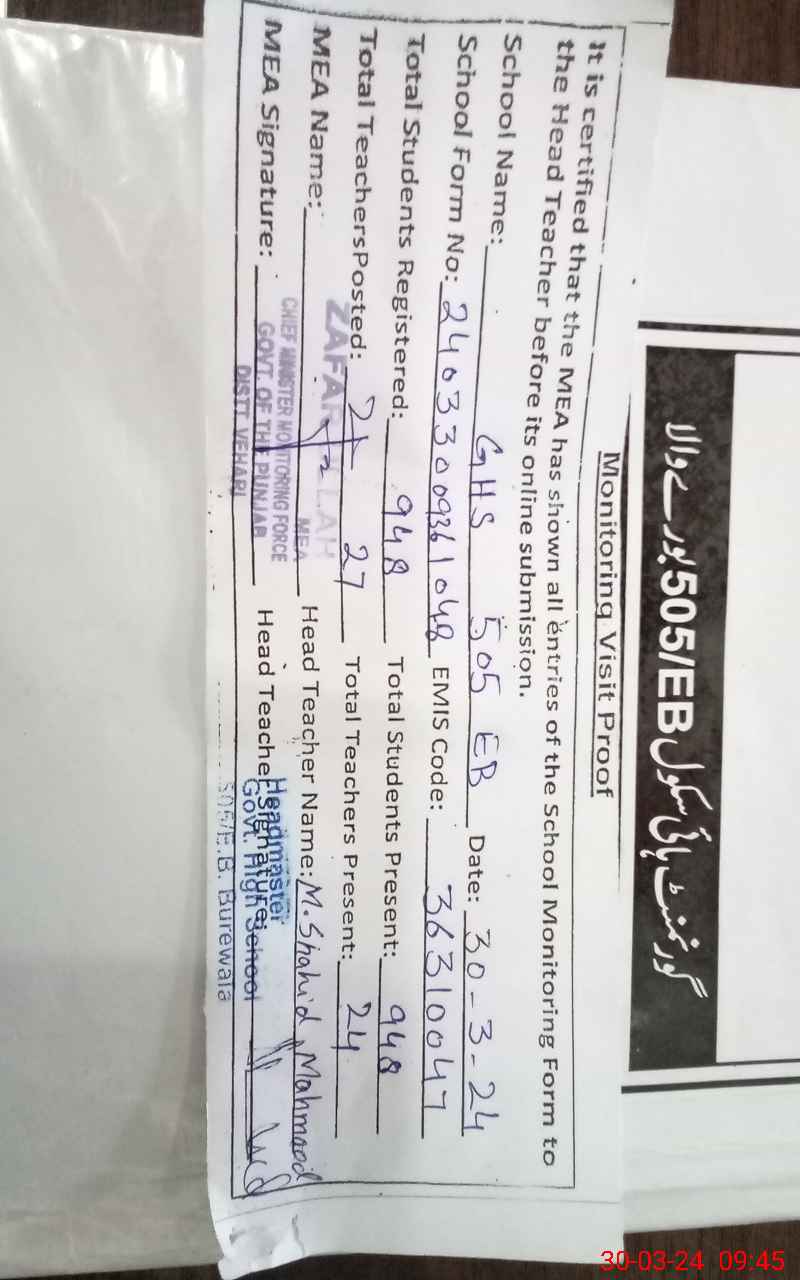 گورنمنٹ ہائی سکول 505/EB بورے والا
Monitoring Visit Proof
It is certified that the MEA has shown all entries of the School Monitoring Form to
the Head Teacher before its online submission.
School Name: GHS 505 EB Date: 30-3-24
School Form No: 24033009361048 EMIS Code: 36310047
Total Students Registered: 948 Total Students Present: 948
Total TeachersPosted: 27 Total Teachers Present: 24
MEA Name: Head Teacher Name: M. Shahid Mahmood
ZAFAR ULLAH
MEA
MEA Signature: Head Teacher Signature:
CHIEF MINISTER MONITORING FORCE
GOVT. OF THE PUNJAB
DISTT VEHARI
Headmaster
Govt. High School
505/E.B. Burewala
30-03-24 09:45